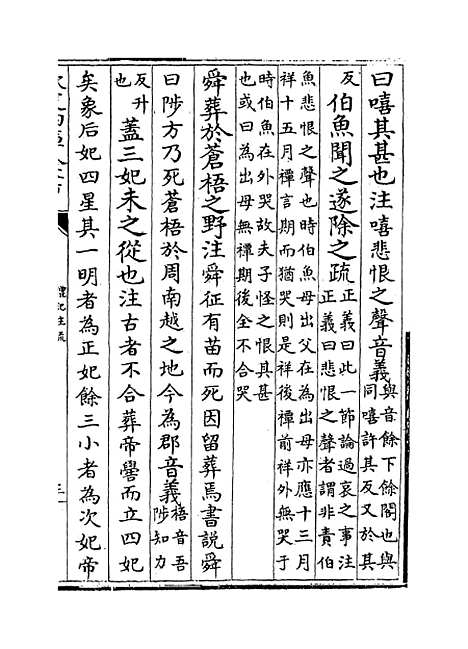 曰嘻其甚也注嘻悲恨之聲音義
與音餘下餘閤也與
同嘻許其反又於其
反
伯魚聞之遂除之疏
正義曰此一節論過哀之事注
正義曰悲恨之聲者謂非責伯
魚悲恨之聲也時伯魚母出父在為出母亦應十三月
祥十五月禫言期而猶哭則是祥後禫前祥外無哭于
時伯魚在外哭故夫子怪之恨其甚
也或曰為出母無禫期後全不合哭
舜葬於蒼梧之野注舜征有苗而死因留葬焉書說舜
曰陟方乃死蒼梧於周南越之地今為郡音義
梧音吾
陟知力
反升
也
蓋三妃未之從也注古者不合葬帝嚳而立四妃
矣象后妃四星其一明者為正妃餘三小者為次妃帝
禮記注疏
三